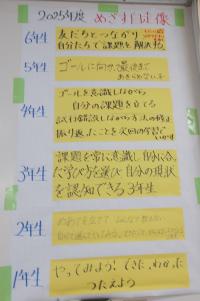 2025年度 めざす児童像
6年生
友だちとつながり
自分たちで課題を解決
5年生
ゴールに向かって最後まで
あきらめない子
4年生
ゴールを意識しながら
自分の課題を立てる
試行錯誤しながら方法の
振り返ったことを次の学習で
いかす
3年生
課題を常に意識し自分に合っ
た学び方を選び自分の現状
を認知できる3年生
2年生
めあてを立てて
1年生
やってみよう!できた、わかった
つたえよう